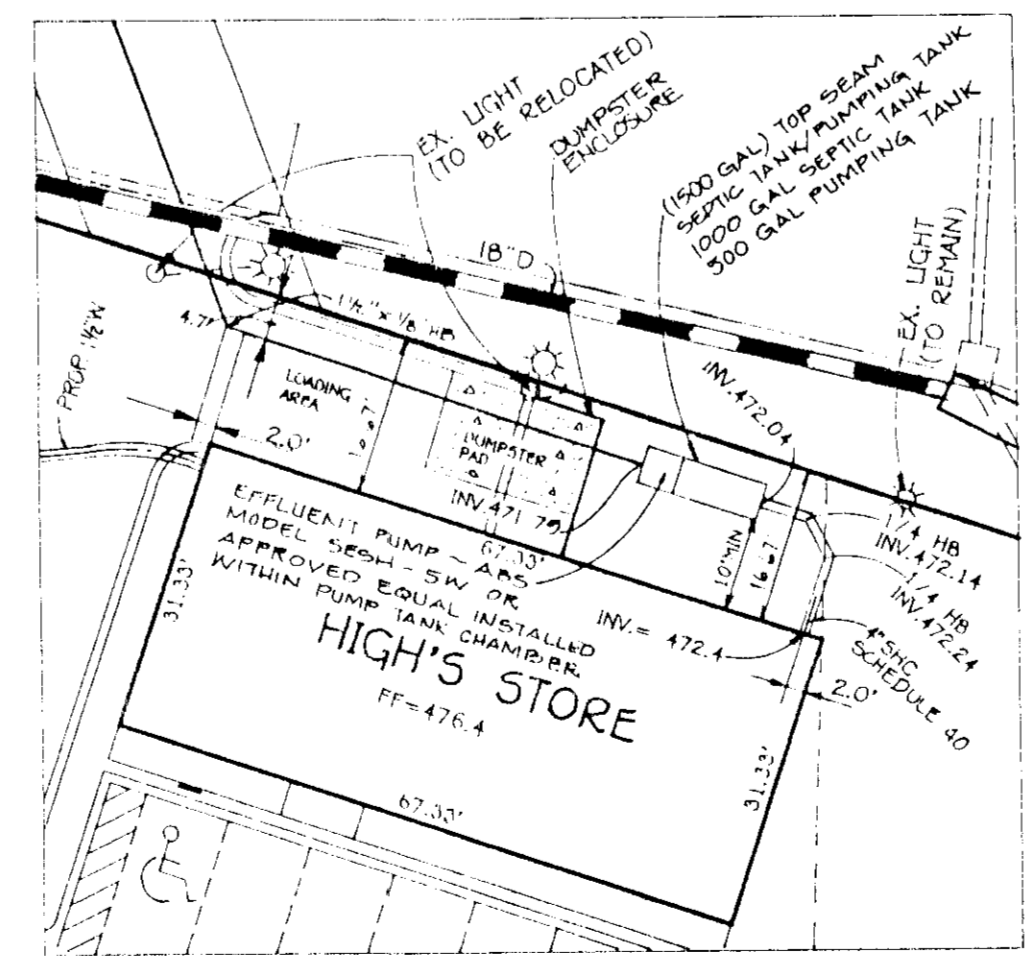 EX. LIGHT
(TO BE RELOCATED)
DUMPSTER
ENCLOSURE
(1500 GAL) TOP SEAM
SEPTIC TANK/PUMPING TANK
1000 GAL SEPTIC TANK
500 GAL PUMPING TANK
EX. LIGHT
(TO REMAIN)
18"D
4.7'
1 1/2" x 1/8 HB
PROP. 1 1/2" W
LOADING
AREA
2.0'
DUMPSTER
PAD
INV. 472.04
INV. 471.79
67.33'
10' MIN
16.67
1/4 HB
INV. 472.14
1/4 HB
INV. 472.24
4" SHC
SCHEDULE 40
EFFLUENT PUMP ~ ABS
MODEL SESH - 5W OR
APPROVED EQUAL INSTALLED
WITHIN PUMP TANK CHAMBER
INV. = 472.4
2.0'
31.33'
HIGH'S STORE
FF=476.4
31.33'
67.33'